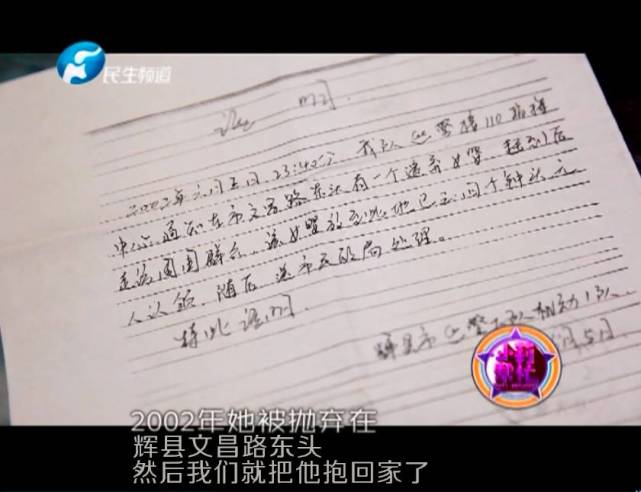 民生频道
证明
2002年六月五日23:40分 我队巡警接110指挥
中心通知在市文昌路东头有一个遗弃女婴 赶到后
走访周围群众，该女婴放到此地已三四个钟头无
人认领，随后送市民政局处理。
特此证明
辉县市巡警大队机动1队
月5日
小莉帮忙
2002年她被抛弃在
辉县文昌路东头
然后我们就把他抱回家了